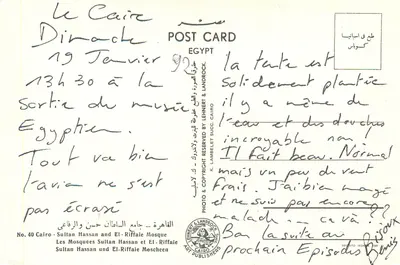 Le Caire
Dimache
19 Janvier 92
13h30 à la
sortie du musée
Egyptien.
Tout va bien
l'avion ne s'est
pas écrasé
مصر
POST CARD
EGYPT
طبع في اسبانيا
PHOTO & COPYRIGHT RESERVED BY LEHNERT & LANDROCK.
K. LAMBELET SUCC. CAIRO
la tente est
Solidement plantée
il y a même de
l'eau et des douches
incroyable non
Il fait beau. Normal
mais un peu de vent
Frais. J'ai bien mangé
et ne suis pas encore
malade.... ca va ?
Bon la suite au
prochain Episodes
Bisoux
Denis
القاهرة - جامع السلطان حسن والرفاعي
No. 60 Cairo - Sultan Hassan and El-Riffaie Mosque
Les Mosquées Sultan Hassan et El-Riffaie
Sultan Hassan und El-Riffaie Moscheen